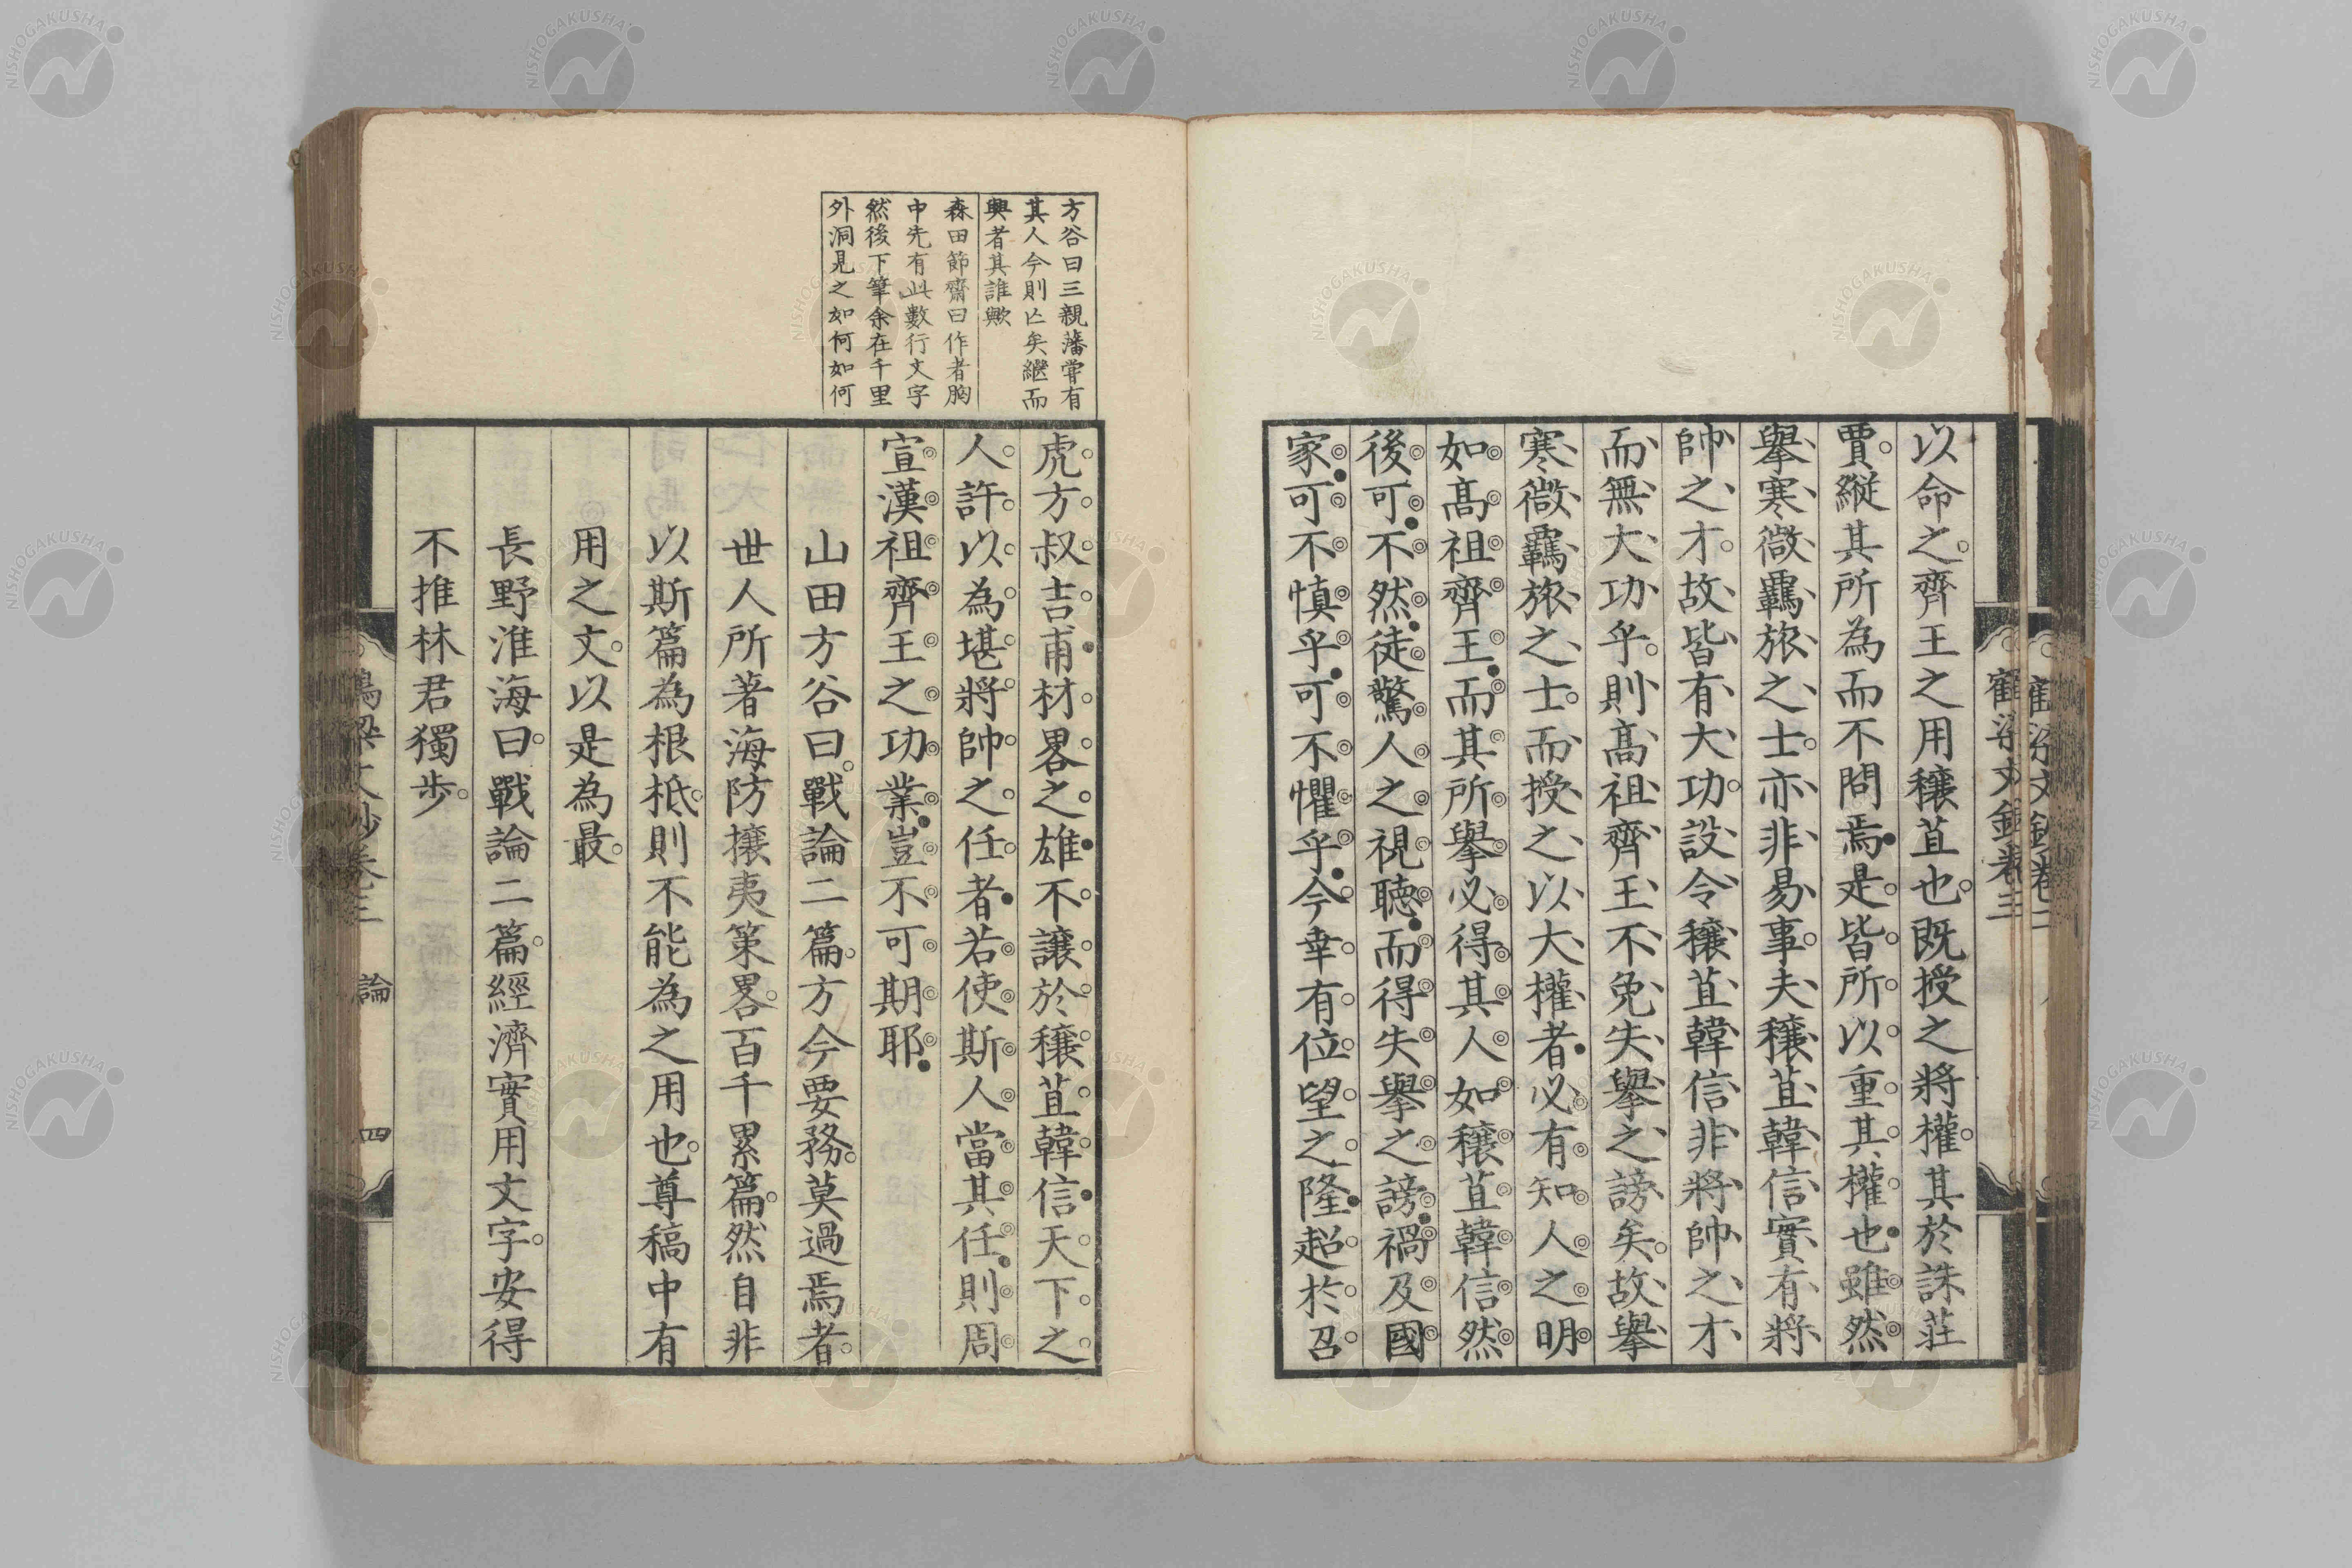 以命之齊王之用穰苴也既授之將權其於誅莊
賈縱其所為而不問焉是皆所以重其權也雖然
擧寒微羈旅之士亦非易事夫穰苴韓信實有將
帥之才故皆有大功設令穰苴韓信非將帥之才
而無大功乎則高祖齊王不免失擧之謗矣故擧
寒微羈旅之士而授之以大權者必有知人之明
如高祖齊王而其所擧必得其人如穰苴韓信然
後可不然徒驚人之視聽而得失擧之謗禍及國
家可不慎乎可不懼乎今幸有位望之隆超於召
方谷曰三親藩甞有
其人今則亡矣繼而
興者其誰歟
森田節齋曰作者胸
中先有此數行文字
然後下筆余在千里
外洞見之如何如何
虎方叔吉甫材畧之雄不讓於穰苴韓信天下之
人許以為堪將帥之任者若使斯人當其任則周
宣漢祖齊王之功業豈不可期耶
山田方谷曰戰論二篇方今要務莫過焉者
世人所著海防攘夷策畧百千累篇然自非
以斯篇為根柢則不能為之用也尊稿中有
用之文以是為最
長野淮海曰戰論二篇經濟實用文字安得
不推林君獨步
鶴梁文鈔卷三 論 四
NISHOGAKUSHA